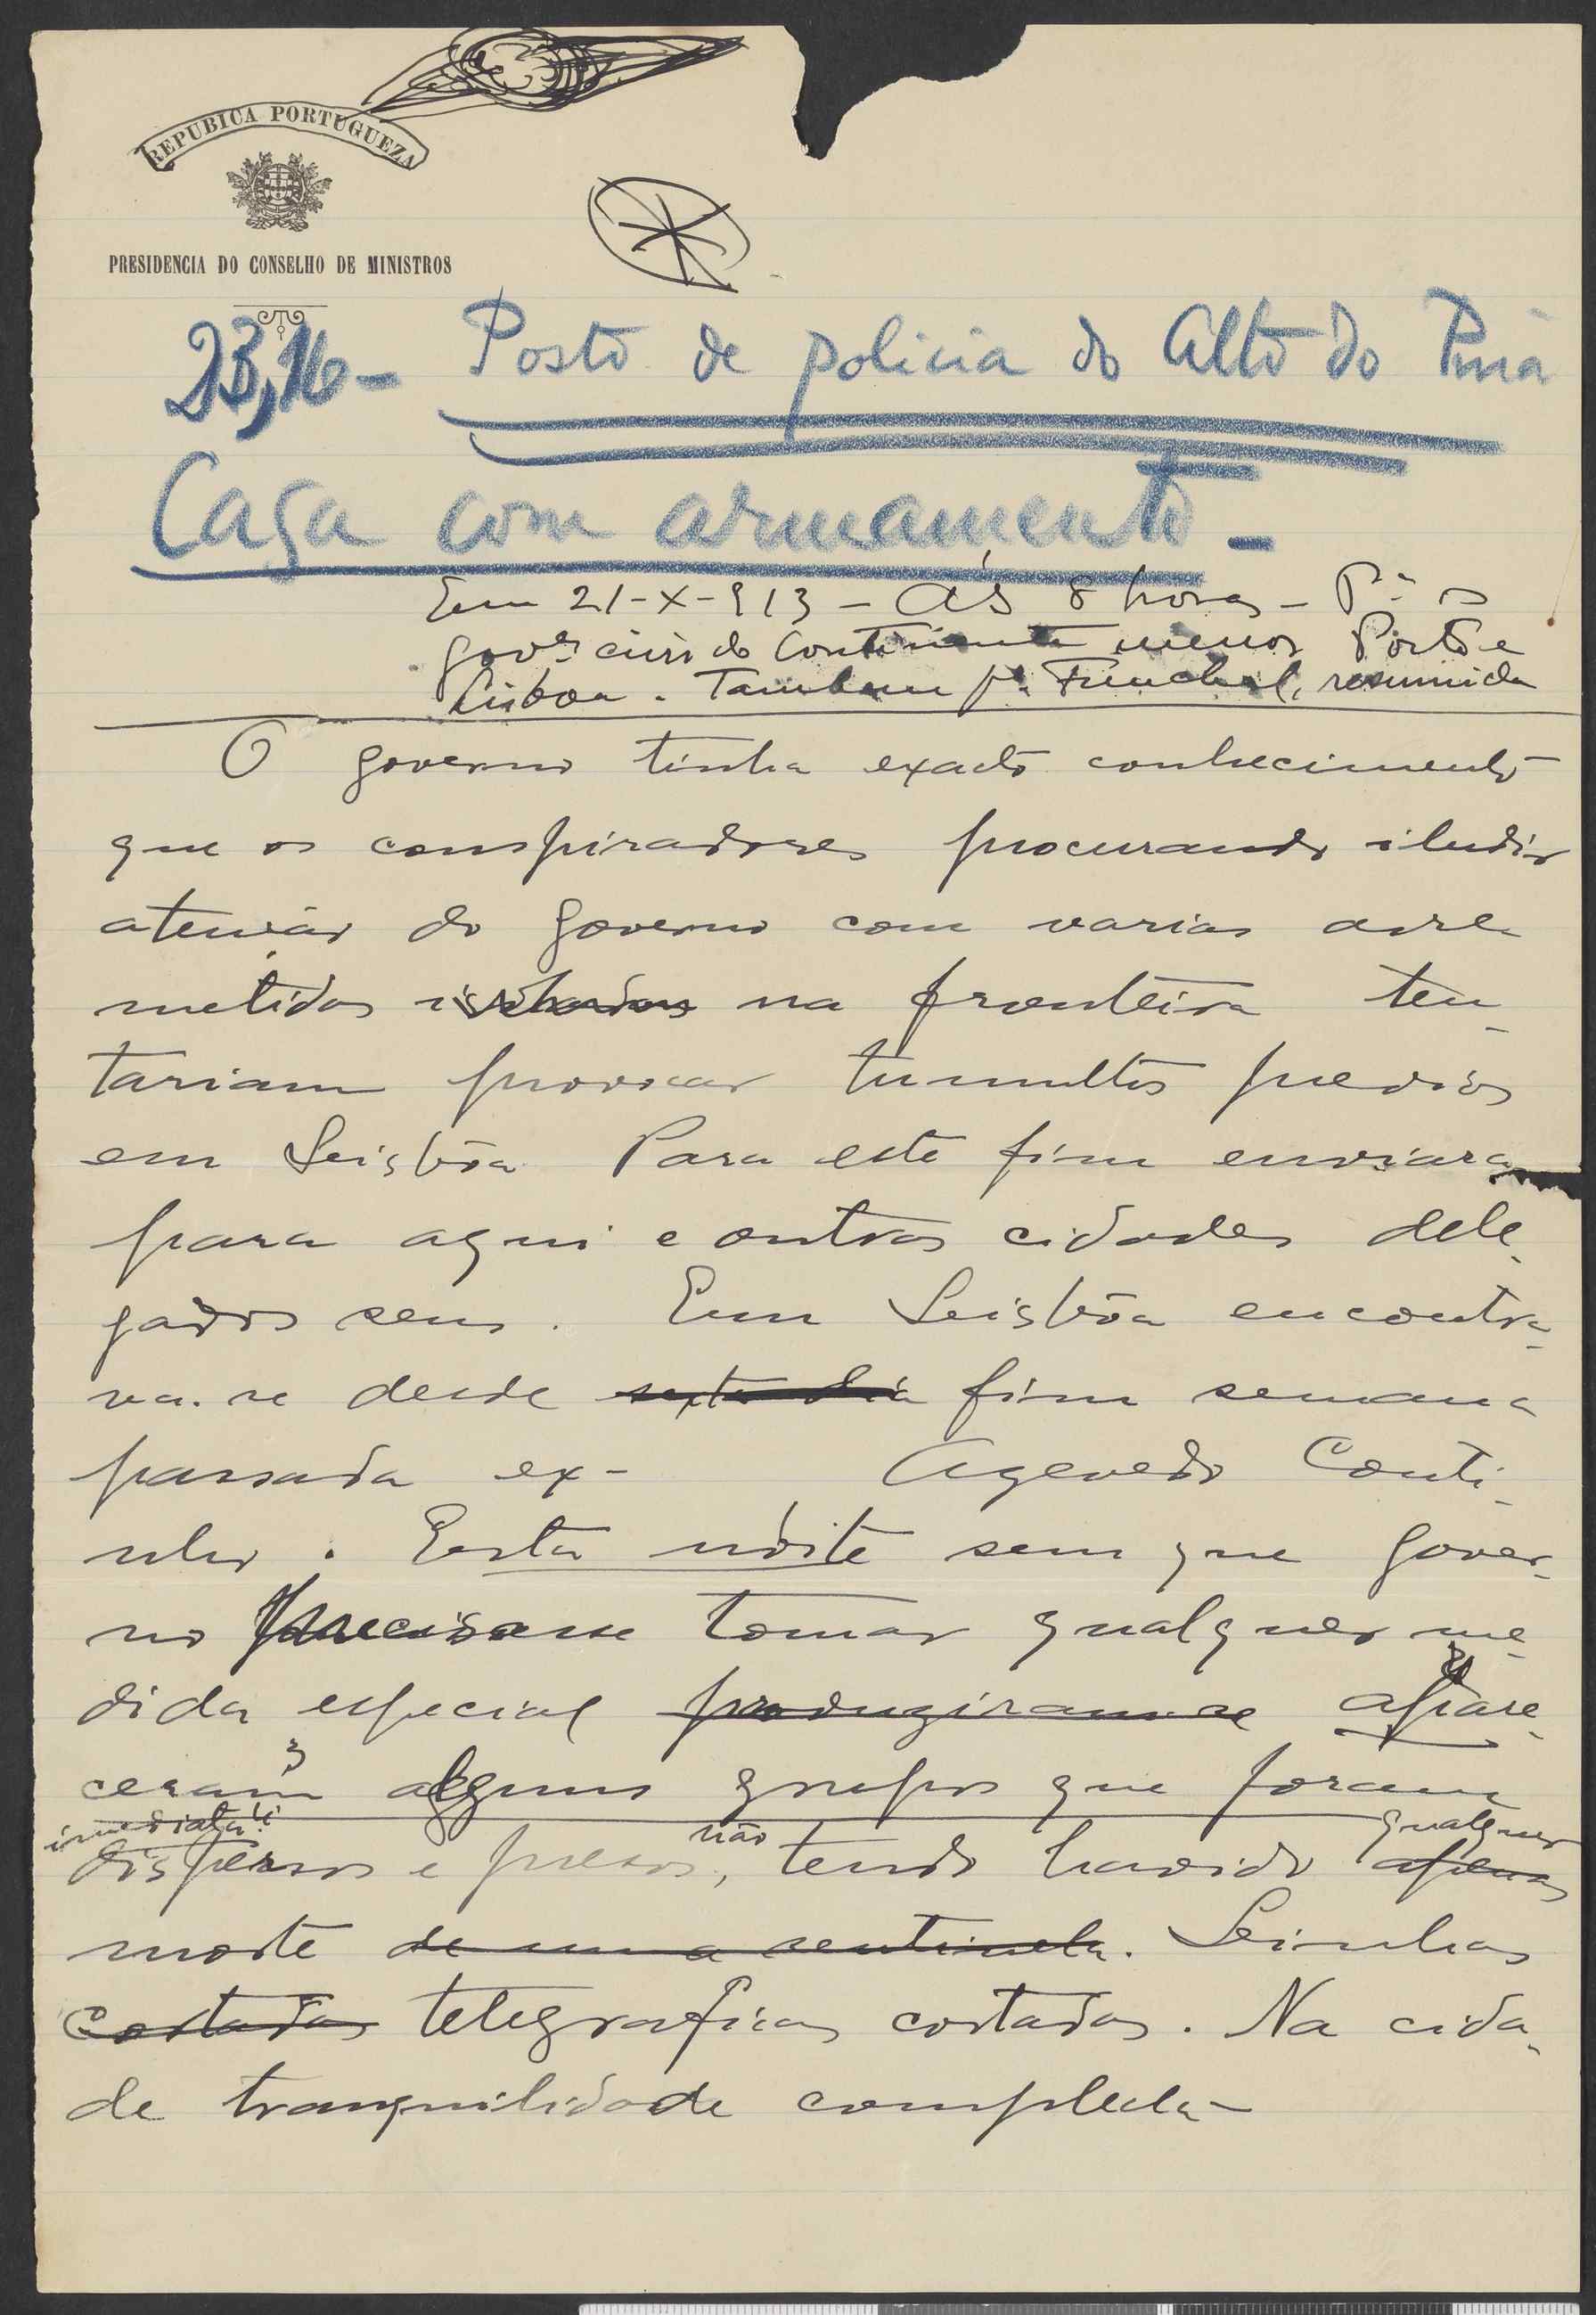 REPUBICA PORTUGUEZA
PRESIDENCIA DO CONSELHO DE MINISTROS
23,16 - Posto de policia do Alto do Pina
Casa com armamento -
Em 21-X-913 - Ás 8 horas - Pª os
govºs civis do Continente menos Porto e
Lisboa. Tambem pª Funchal, resumida
O governo tinha exacto conhecimento
que os conspiradores procurando iludir
atenção do governo com varias arre
metidas isoladas na fronteira ten-
tariam provocar tumultos previos
em Leisbôa Para este fim enviara
para aqui e outras cidades dele-
gados seus. Em Leisbôa encontra-
va-se desde sexta dia fim semana
passada ex- Azevedo Couti-
nho. Esta noite sem que gover-
no precisasse tomar qualquer me-
dida especial produziram-se apare-
ceram alguns grupos que foram
imediatate não qualquer
dispersos e presos, tendo havido apenas
morte de uma sentinela. Leinhas
cortadas telegraficas cortadas. Na cida-
de tranquilidade completa -